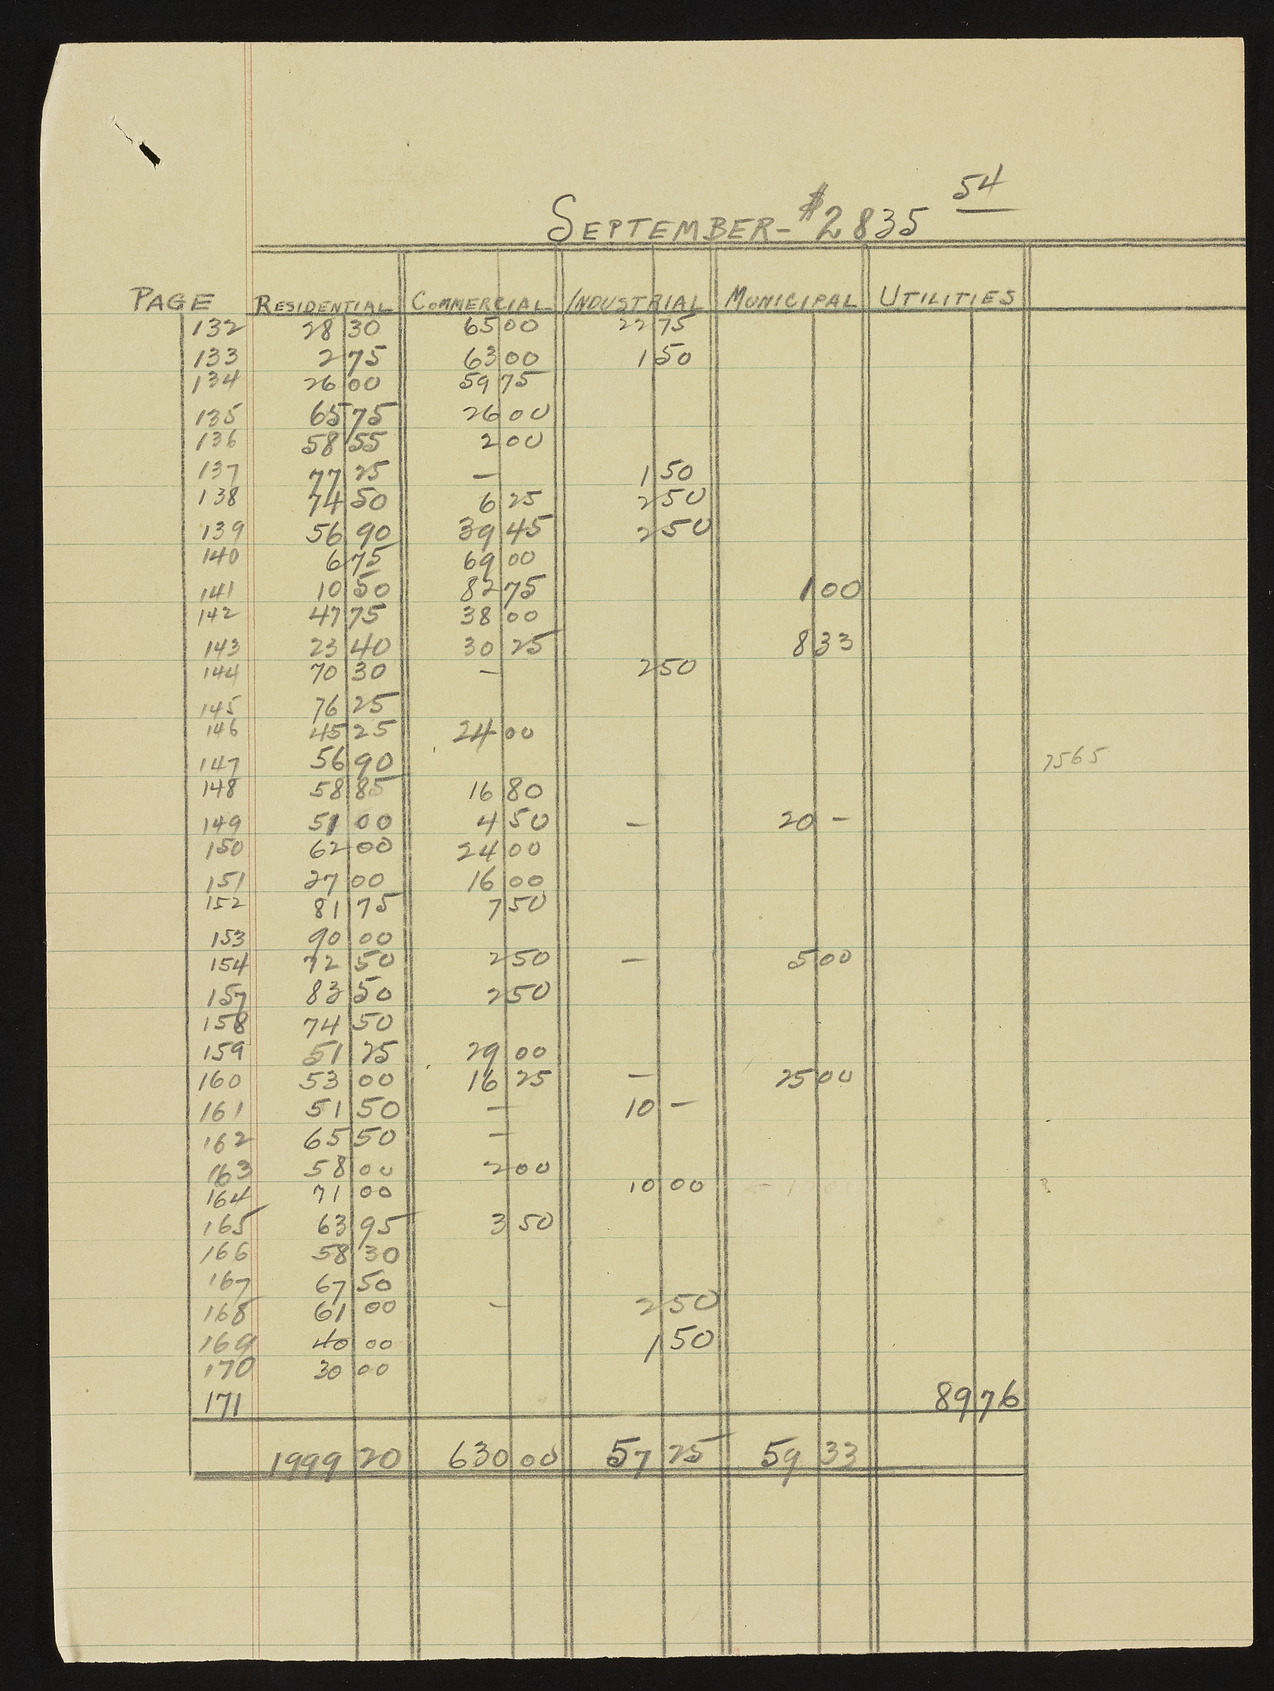 SEPTEMBER - $2835 54
PAGE RESIDENTIAL COMMERCIAL INDUSTRIAL MUNICIPAL UTILITIES
132 28 30 65 00 22 75
133 2 75 63 00 1 50
134 26 00 59 75
135 65 75 26 00
136 58 55 2 00
137 77 25 — 1 50
138 74 50 6 25 2 50
139 56 90 39 45 2 50
140 6 75 69 00
141 10 50 82 75 1 00
142 47 75 38 00
143 23 40 30 25 8 33
144 70 30 — 2 50
145 76 25
146 45 25 24 00
147 56 90 7565
148 58 85 16 80
149 51 00 4 50 — 20 -
150 62 00 24 00
151 27 00 16 00
152 81 75 7 50
153 90 00
154 72 50 2 50 — 5 00
157 83 50 2 50
158 74 50
159 51 25 29 00
160 53 00 16 25 — 25 00
161 51 50 — 10 -
162 65 50 —
163 58 00 2 00
164 71 00 10 00
165 63 95 3 50
166 58 30
167 67 50
168 61 00 - 2 50
169 40 00 1 50
170 30 00
171 89 76
1999 20 630 00 57 25 59 33